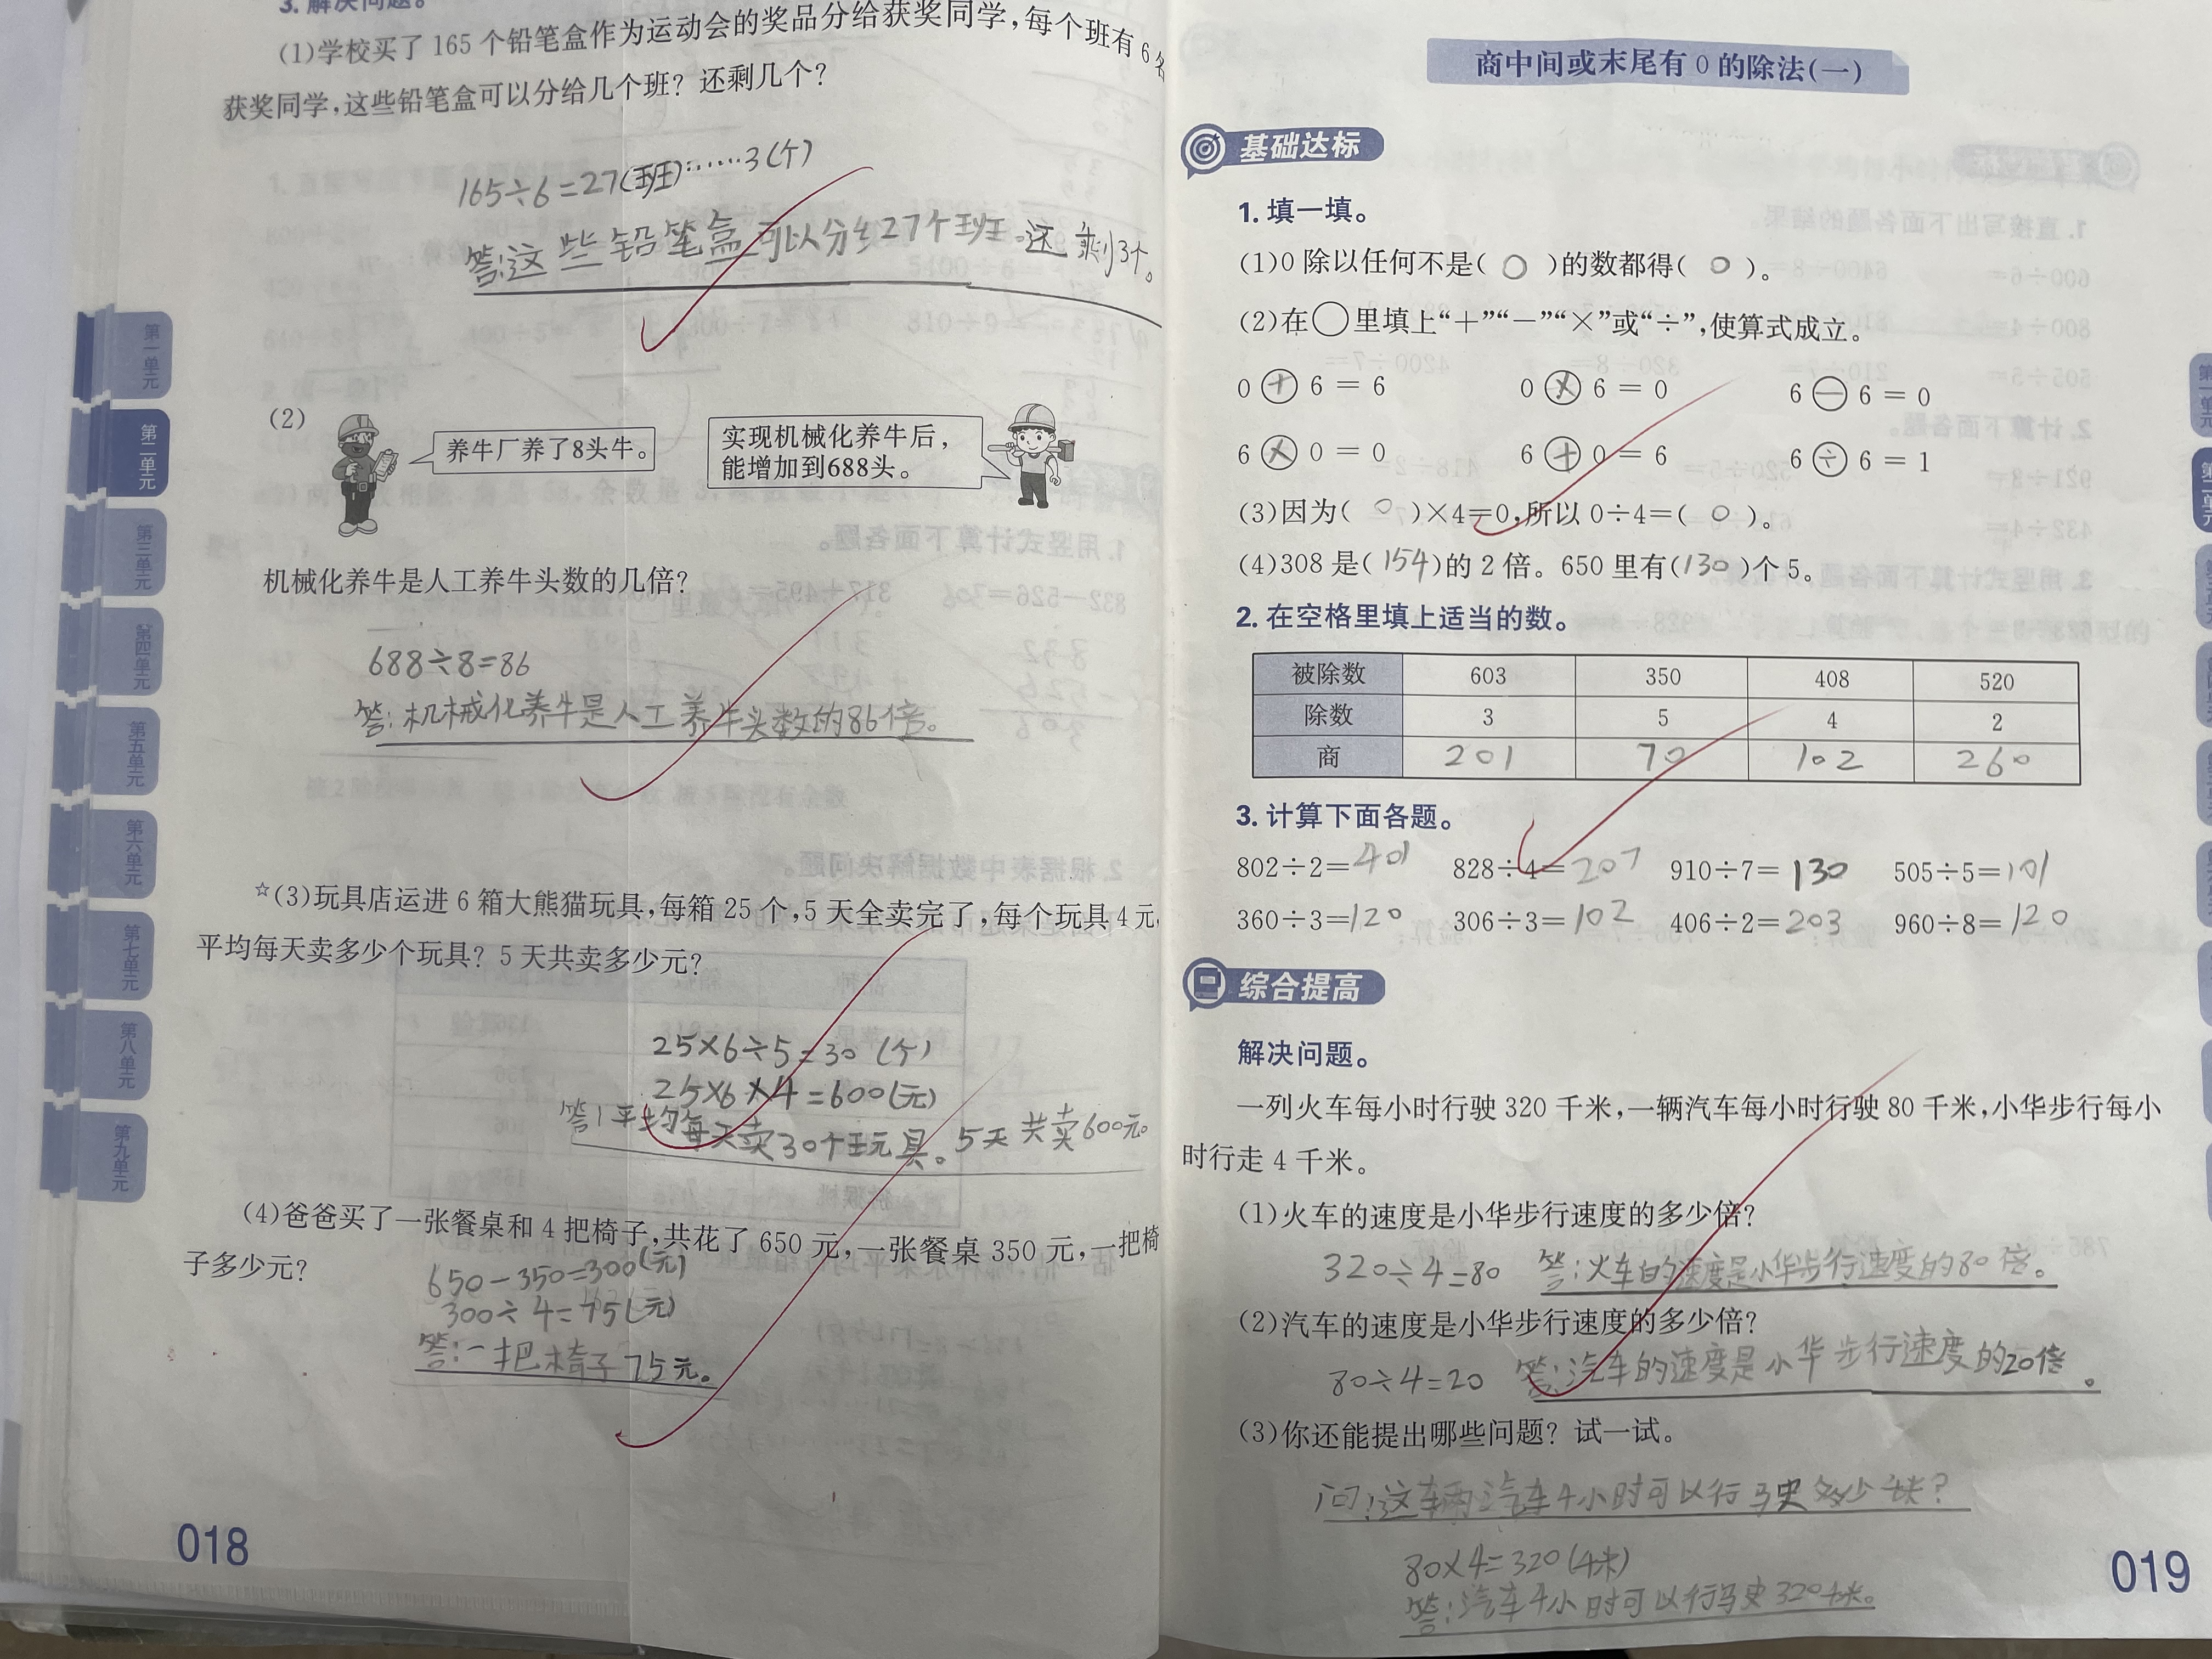 3. 解决问题。
(1)学校买了 165 个铅笔盒作为运动会的奖品分给获奖同学,每个班有 6 名
获奖同学,这些铅笔盒可以分给几个班？还剩几个？
165÷6=27(班)……3(个)
答:这些铅笔盒可以分给27个班。还剩3个。
(2)
养牛厂养了8头牛。
实现机械化养牛后，
能增加到688头。
机械化养牛是人工养牛头数的几倍？
688÷8=86
答:机械化养牛是人工养牛头数的86倍。
☆(3)玩具店运进 6 箱大熊猫玩具,每箱 25 个,5 天全卖完了,每个玩具 4 元。
平均每天卖多少个玩具？5 天共卖多少元？
25×6÷5=30 (个)
25×6×4=600(元)
答:平均每天卖30个玩具。5天共卖600元。
(4)爸爸买了一张餐桌和 4 把椅子,共花了 650 元,一张餐桌 350 元,一把椅
子多少元？
650-350=300(元)
300÷4=75(元)
答:一把椅子75元。
018
第一单元
第二单元
第三单元
第四单元
第五单元
第六单元
第七单元
第八单元
第九单元
商中间或末尾有 0 的除法(一)
基础达标
1. 填一填。
(1)0 除以任何不是( 0 )的数都得( 0 )。
(2)在○里填上“+”“-”“×”或“÷”,使算式成立。
0 + 6 = 6 0 × 6 = 0 6 - 6 = 0
6 × 0 = 0 6 + 0 = 6 6 ÷ 6 = 1
(3)因为( 0 )×4=0,所以 0÷4=( 0 )。
(4)308 是(154)的 2 倍。650 里有(130)个 5。
2. 在空格里填上适当的数。
被除数 603 350 408 520
除数 3 5 4 2
商 201 70 102 260
3. 计算下面各题。
802÷2=401 828÷4=207 910÷7=130 505÷5=101
360÷3=120 306÷3=102 406÷2=203 960÷8=120
综合提高
解决问题。
一列火车每小时行驶 320 千米,一辆汽车每小时行驶 80 千米,小华步行每小
时行走 4 千米。
(1)火车的速度是小华步行速度的多少倍？
320÷4=80 答:火车的速度是小华步行速度的80倍。
(2)汽车的速度是小华步行速度的多少倍？
80÷4=20 答:汽车的速度是小华步行速度的20倍。
(3)你还能提出哪些问题？试一试。
问:这辆汽车4小时可以行驶多少千米?
80×4=320(千米)
答:汽车4小时可以行驶320千米。
019